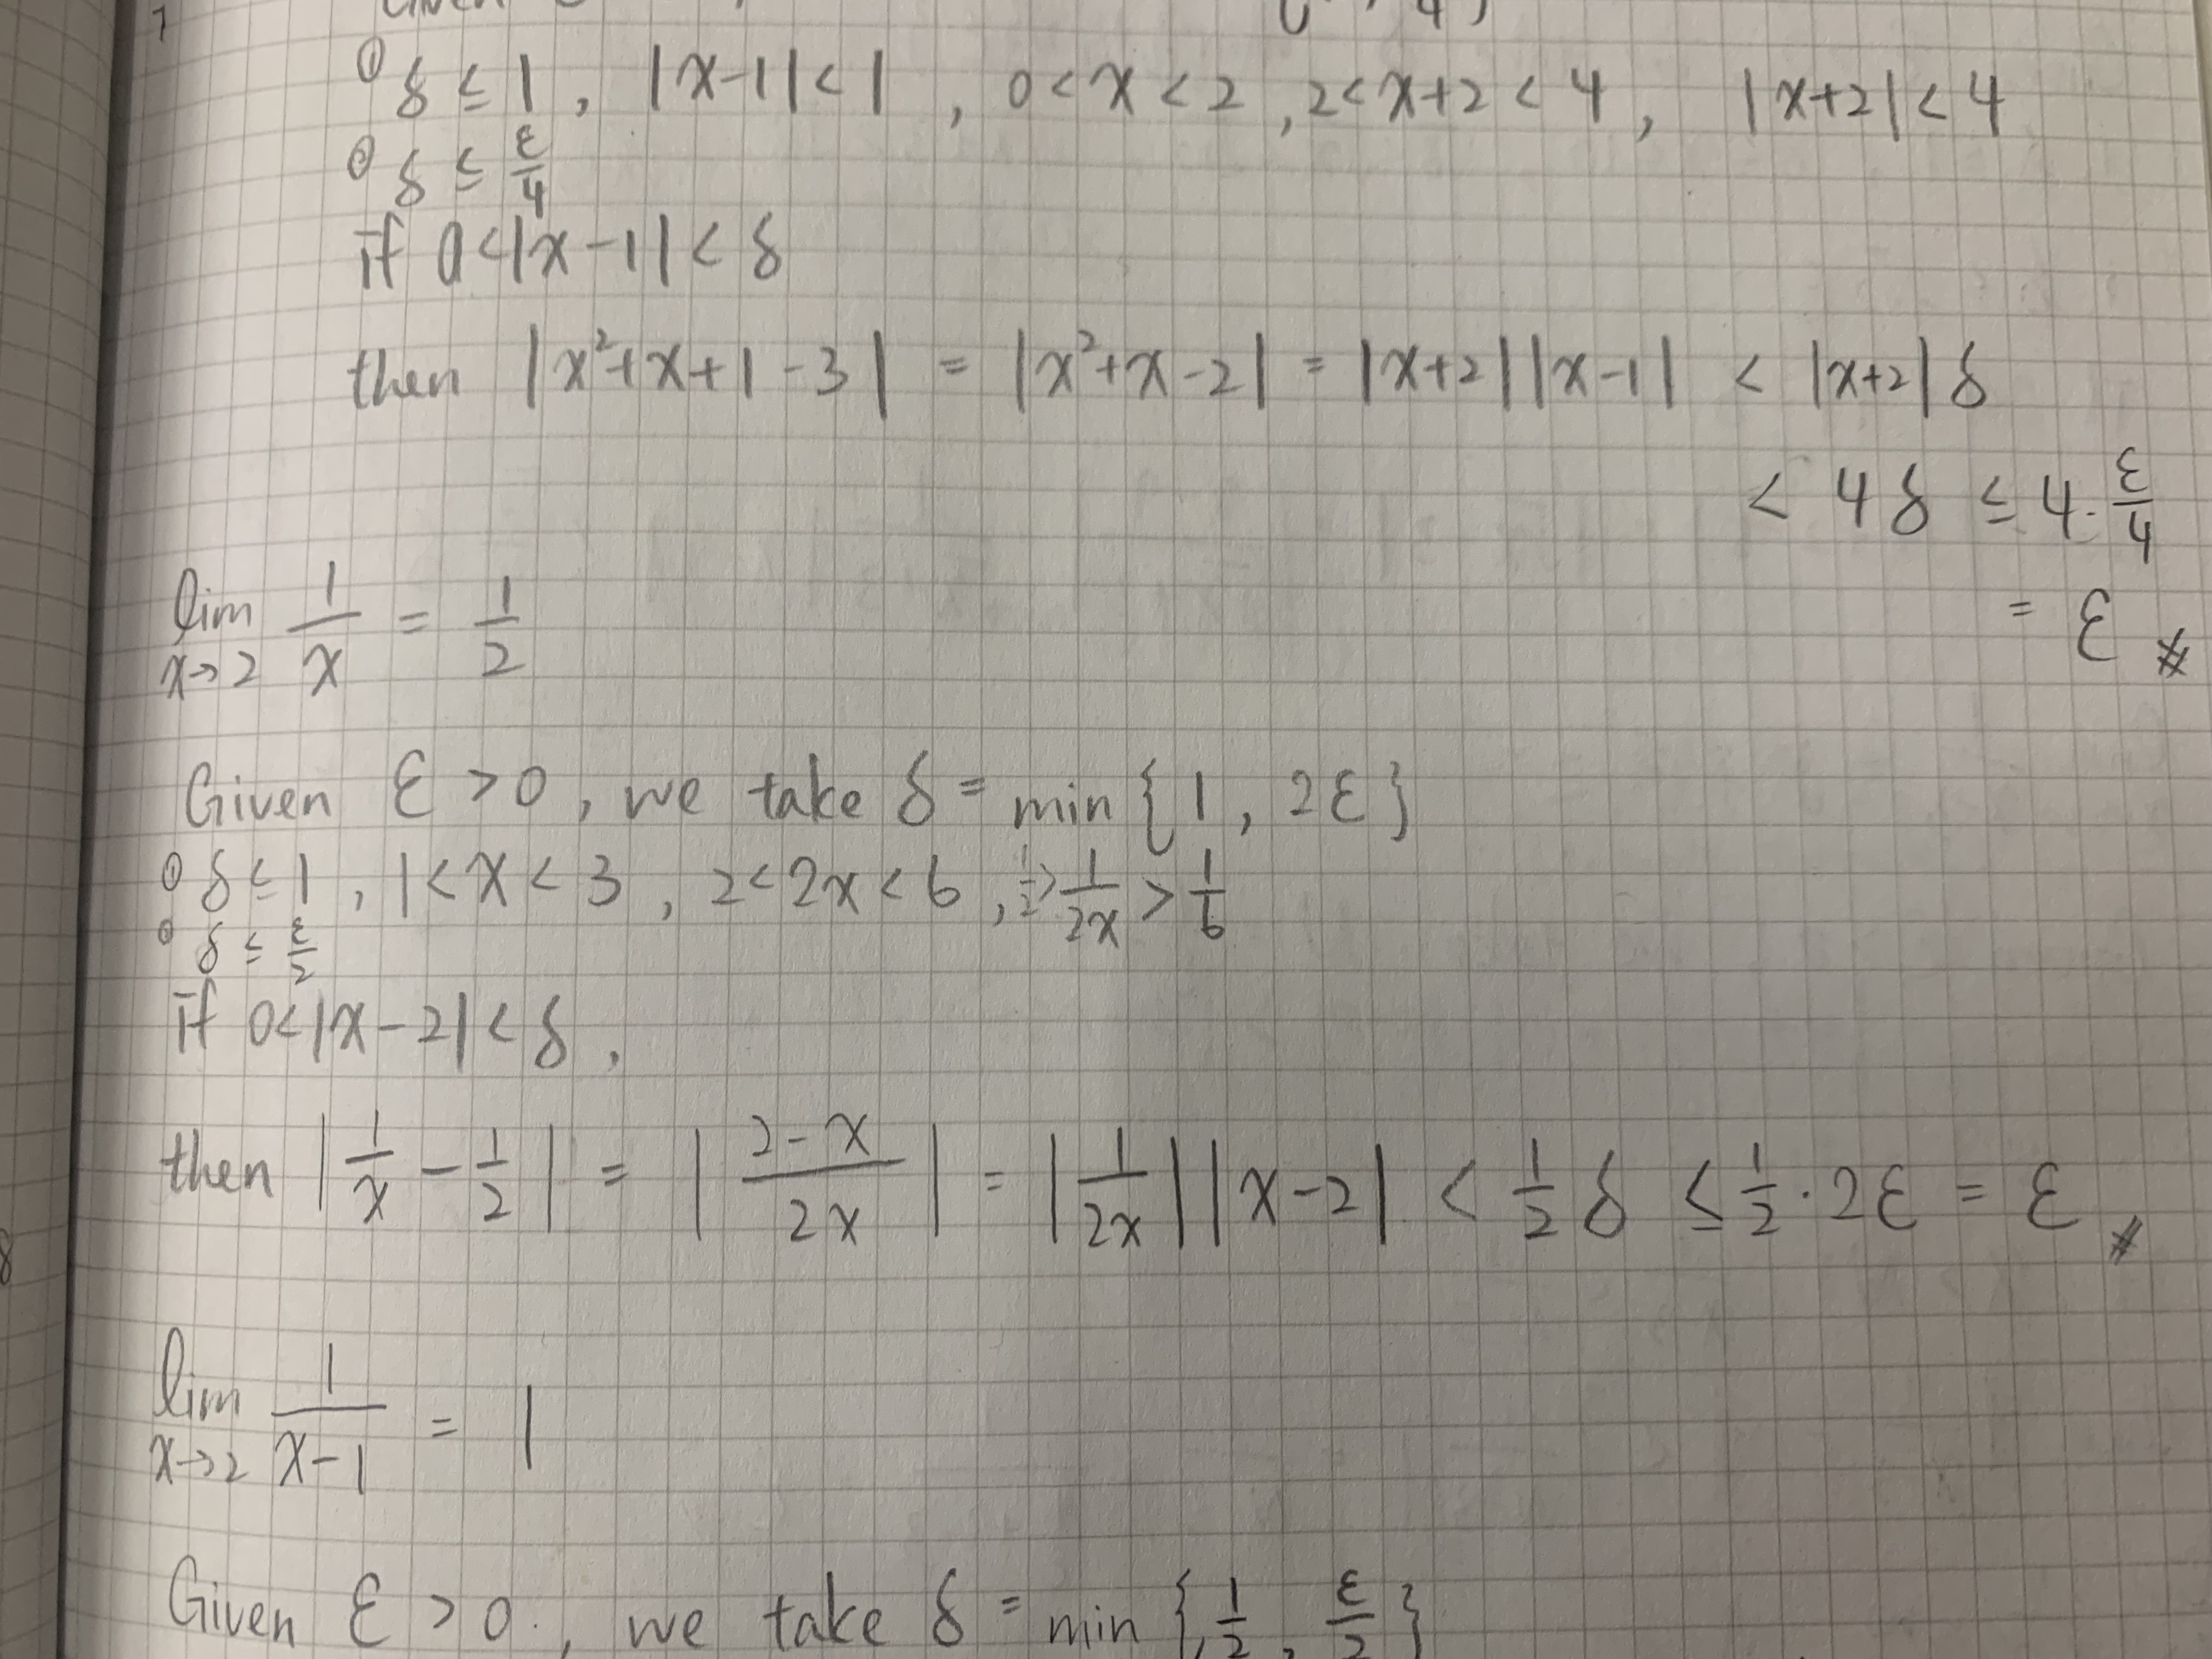 ① δ ≤ 1, |x-1|<1, 0<x<2, 2<x+2<4, |x+2|<4
② δ ≤ ε/4
If 0<|x-1|<δ
then |x²+x+1-3| = |x²+x-2| = |x+2||x-1| < |x+2|δ
< 4δ ≤ 4·ε/4
= ε #
lim x→2 1/x = 1/2
Given ε>0, we take δ = min{1, 2ε}
δ ≤ 1, 1<x<3, 2<2x<6, 1/2 > 1/2x > 1/6
δ ≤ ε/2
If 0<|x-2|<δ,
then |1/x - 1/2| = |2-x/2x| = |1/2x||x-2| < 1/2 δ ≤ 1/2·2ε = ε #
lim x→2 1/x-1 = 1
Given ε>0, we take δ = min{1/2, ε/2}